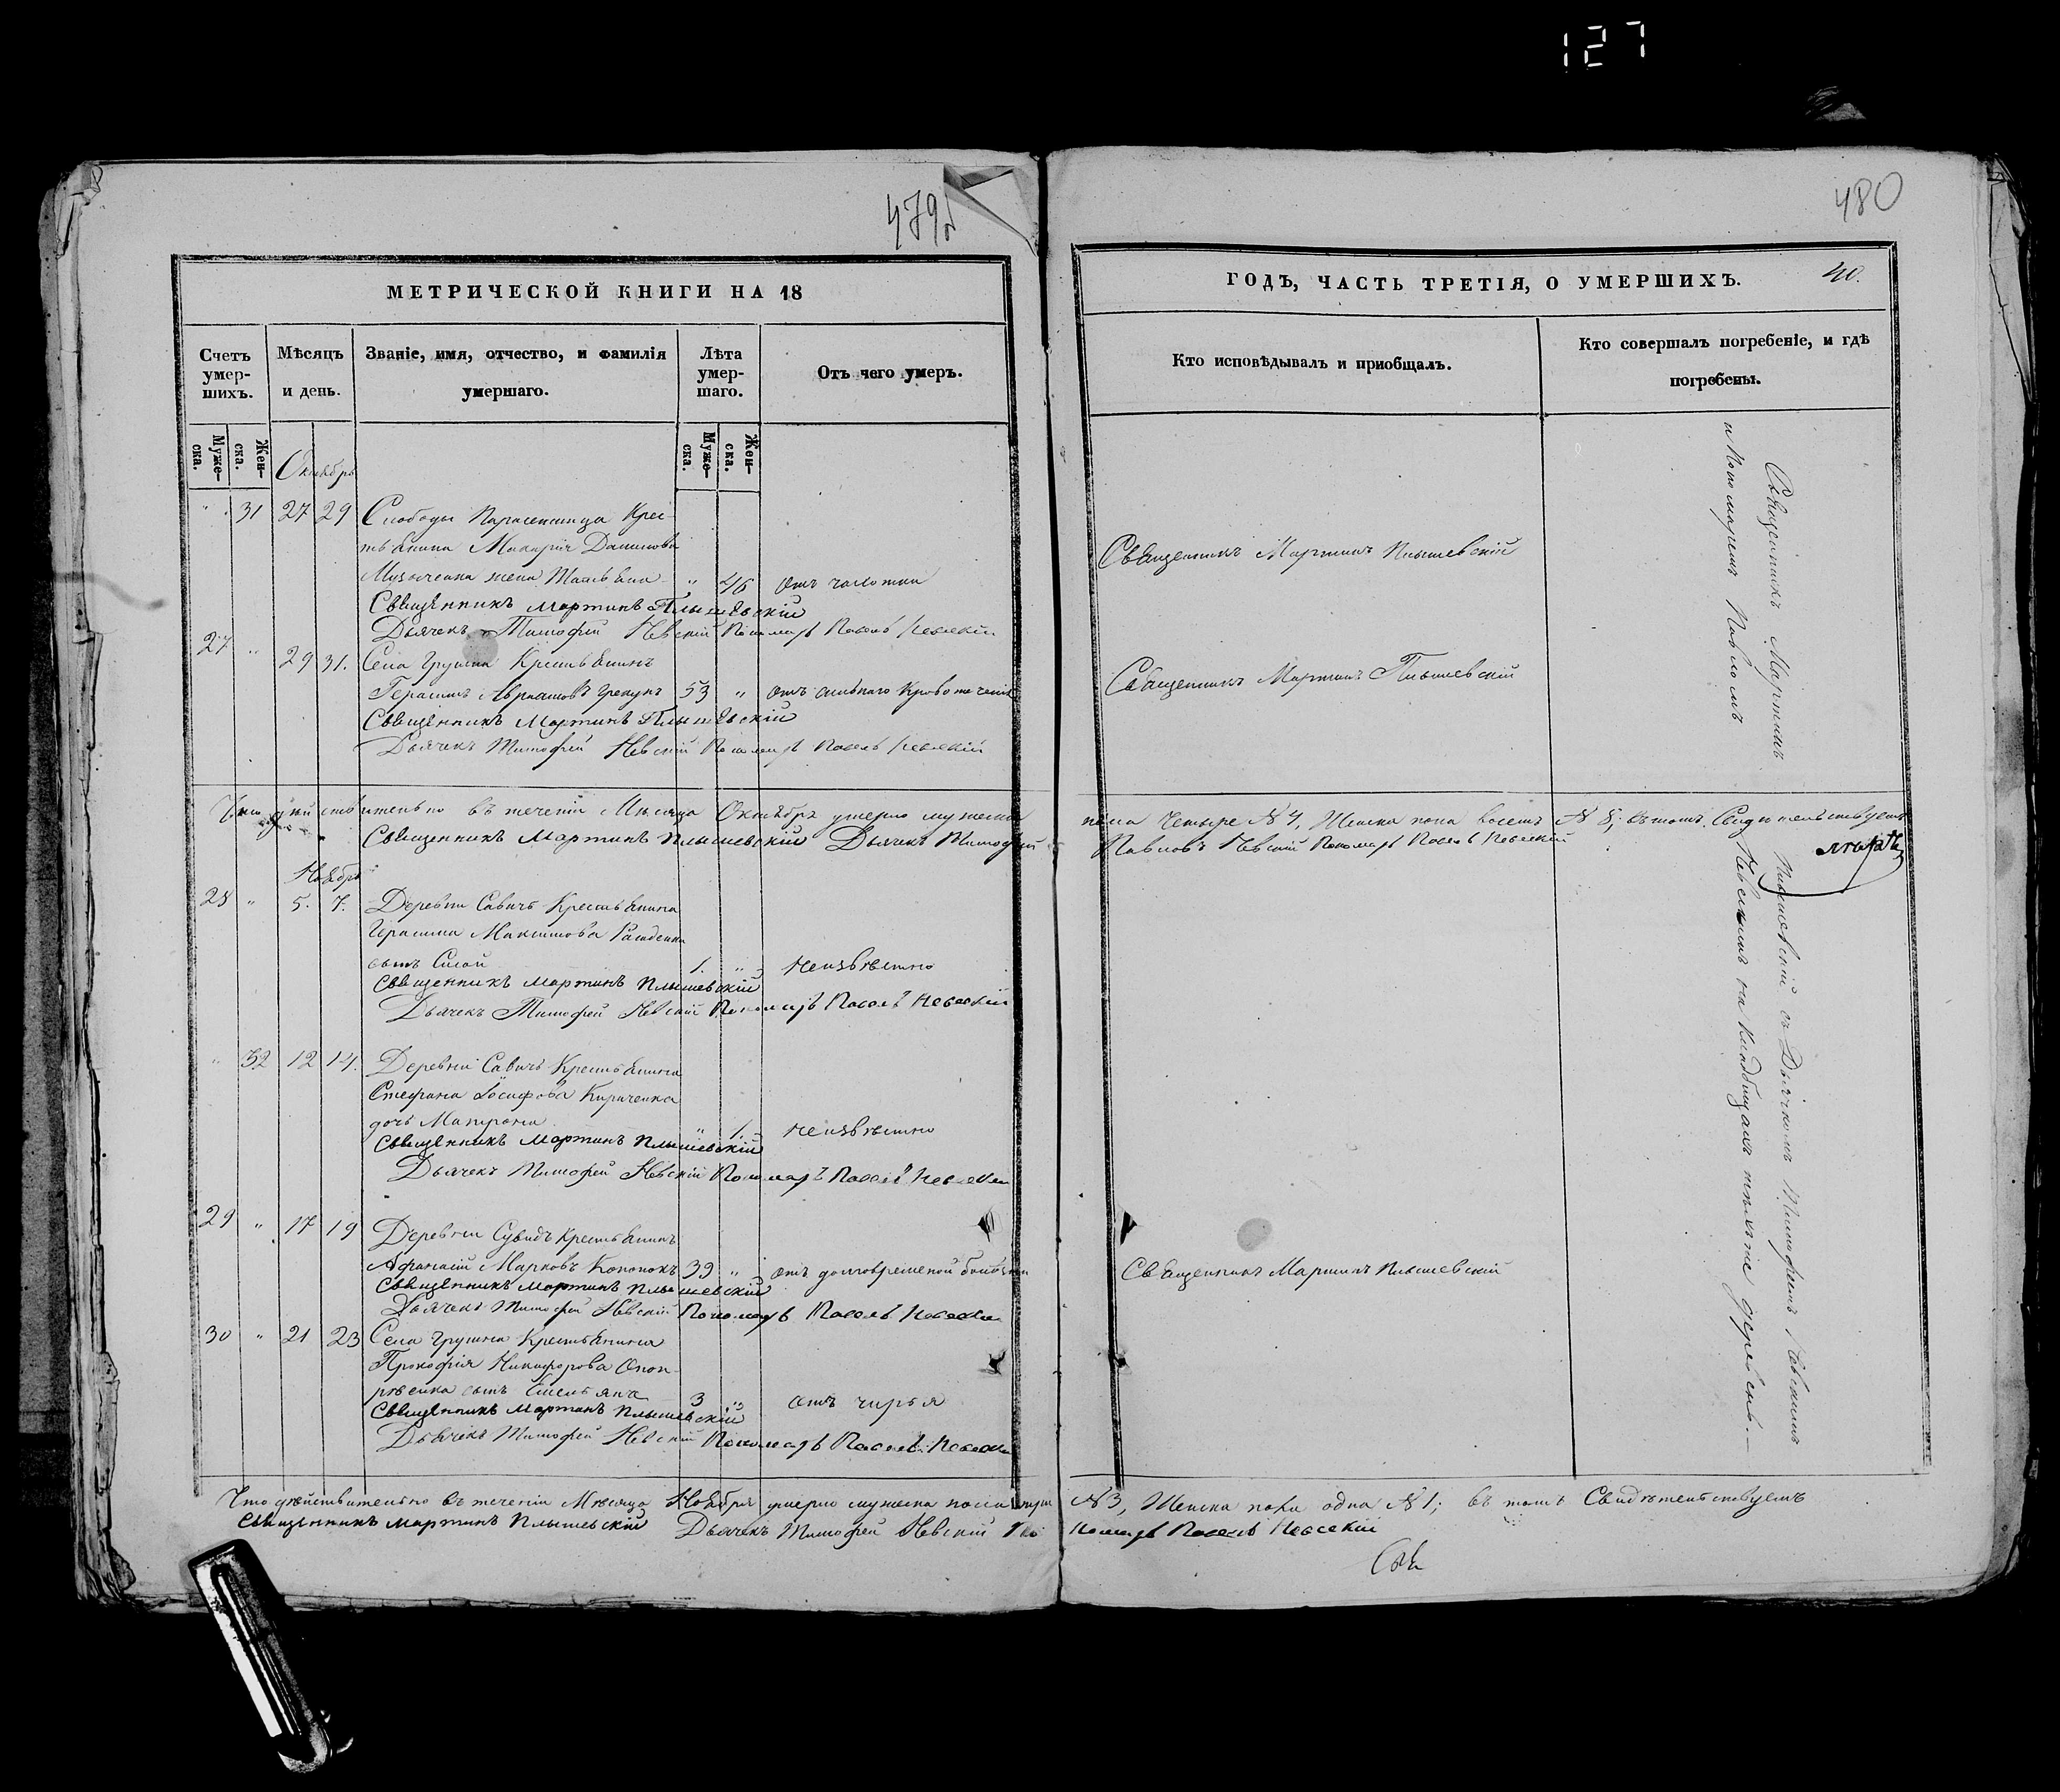 127
479б
480
МЕТРИЧЕСКОЙ КНИГИ НА 18
ГОДЪ, ЧАСТЬ ТРЕТІЯ, О УМЕРШИХЪ.
40.
Счетъ умер-шихъ.
Мѣсяцъ и день.
Званіе, имя, отчество, и фамилія умершаго.
Лѣта умер-шаго.
Отъ чего умеръ.
Кто исповѣдывалъ и пріобщалъ.
Кто совершалъ погребеніе, и гдѣ погребены.
Муже-ска.
Жен-ска.
Муже-ска.
Жен-ска.
Октябрь
" 31 27 29 Слободы Крес-
тьянина Макарія Данилова
жена Татьяна " 46 отъ чахотки
Священникъ Мартинъ Плышевскій
Священникъ Мартинъ Плышевскій
Дьячекъ Тимофей Невскій Пономарь Павелъ Невскій
27 " 29 31. Села Крестьянинъ
Герасимъ 53 " отъ сильнаго кровотеченія
Священникъ Мартинъ Плышевскій
Священникъ Мартинъ Плышевскій
Дьячекъ Тимофей Невскій Пономарь Павелъ Невскій
Что дѣйствительно въ теченіи Мѣсяца Октября умерло мужеска
пола Четыре №4, Женска пола восемь № 8; въ томъ Свидѣтельствуемъ
Священникъ Мартинъ Плышевскій Дьячекъ Тимофей
Павловъ Невскій Пономарь Павелъ Невскій
Ноябрь
28 " 5. 7. Деревни Савичъ Крестьянина
Герасима Максимова
сынъ 1. " неизвѣстно
Священникъ Мартинъ Плышевскій
Дьячекъ Тимофей Невскій Пономарь Павелъ Невскій
" 32 12 14. Деревни Савичъ Крестьянина
Стефана Іосифова Кириченка
дочь Матрона " 1. неизвѣстно
Священникъ Мартинъ Плышевскій
Дьячекъ Тимофей Невскій Пономарь Павелъ Невскій
29 " 17 19 Деревни Сувидъ Крестьянинъ
Афанасій Марковъ Кононокъ 39 " отъ долговременой болѣзни
Священникъ Мартинъ Плышевскій
Священникъ Мартинъ Плышевскій
Дьячекъ Тимофей Невскій Пономарь Павелъ Невскій
30 " 21 23 Села Крестьянина
Прокофія Никифорова
сынъ Емельянъ 3 " отъ чирья
Священникъ Мартинъ Плышевскій
Дьячекъ Тимофей Невскій Пономарь Павелъ Невскій
Священникъ Мартинъ Плышевскій съ Дьячкомъ Тимофеемъ Невскимъ
и Пономаремъ Павломъ Невскимъ на кладбищахъ тѣхъ же деревень.—
Что дѣйствительно въ теченіи Мѣсяца Ноября умерло мужеска пола три
№3, Женска пола одна №1; въ томъ Свидѣтельствуемъ
Священникъ Мартинъ Плышевскій Дьячекъ Тимофей Невскій По-
номарь Павелъ Невскій